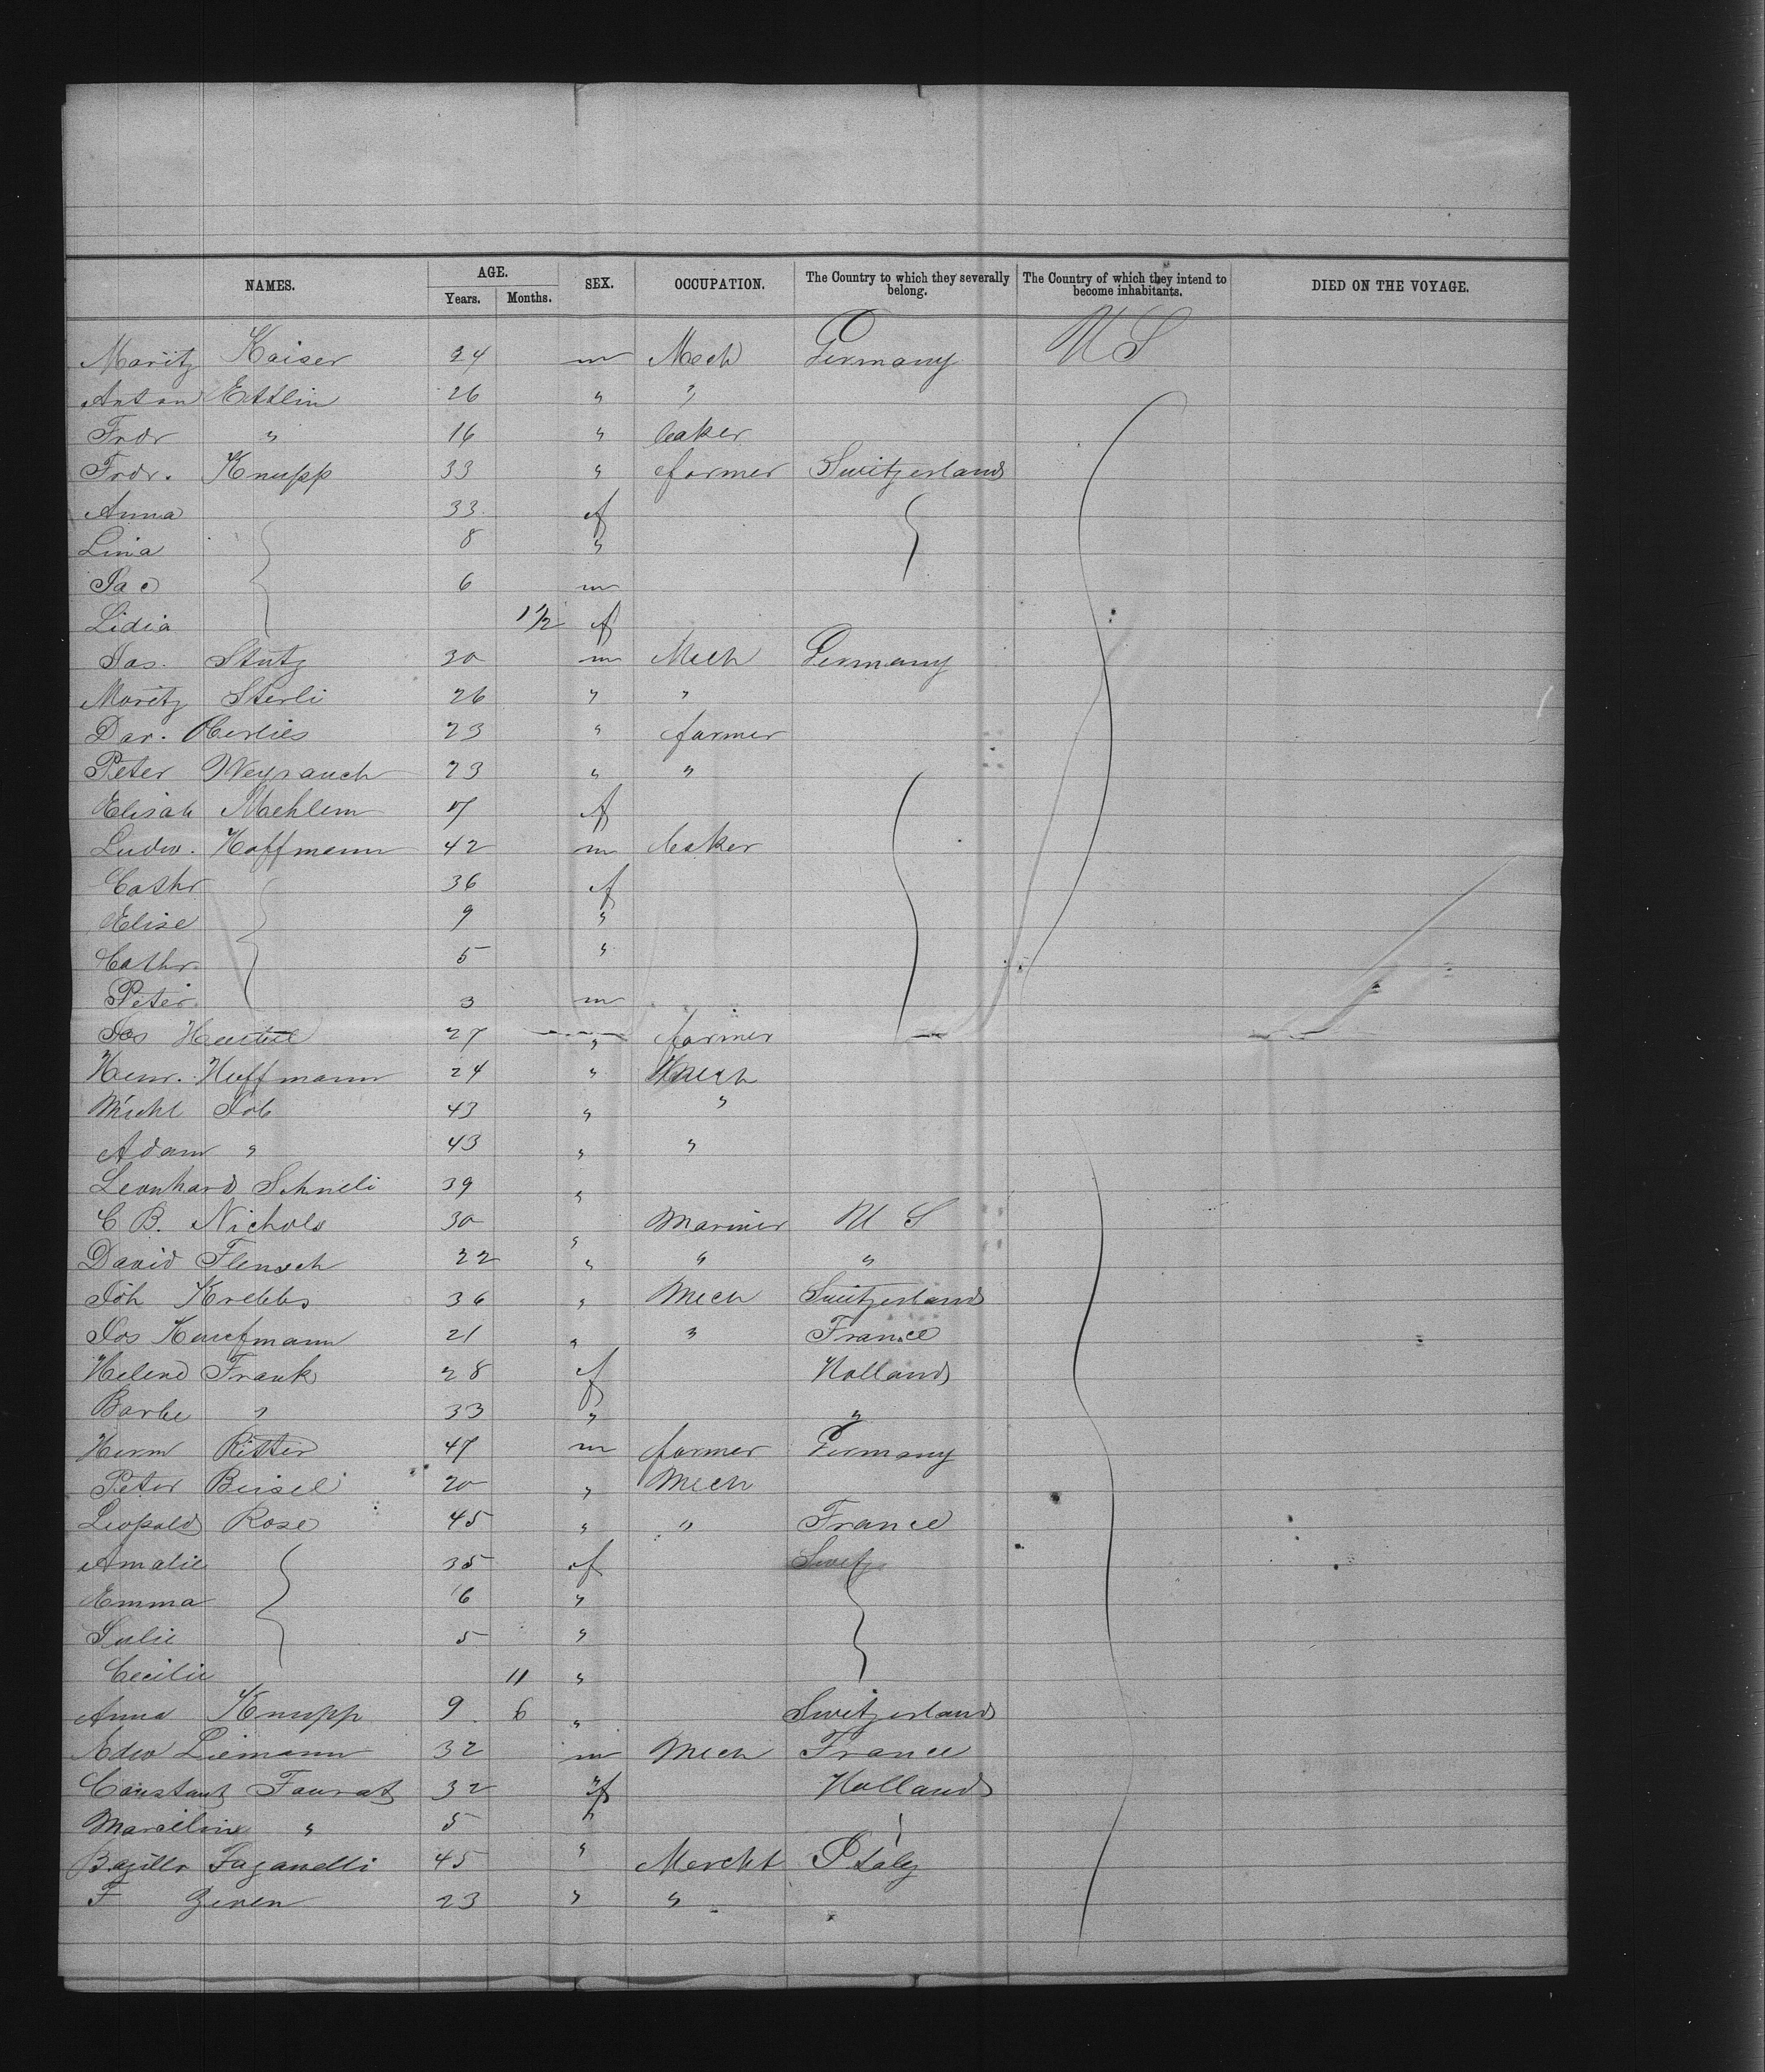 NAMES. AGE. Years. Months. SEX. OCCUPATION. The Country to which they severally belong. The Country of which they intend to become inhabitants. DIED ON THE VOYAGE.
Moritz Kaiser 24 m Mech Germany U S
Anton Ettlin 26 " "
Frdr " 16 " baker
Frdr. Knupp 33 " farmer Switzerland
Anna 33 f
Lina 8 "
Jac 6 m
Lidia 1 1/2 f
Jas. Stutz 30 m Mech Germany
Moritz Sterli 26 " "
Dar. Oberlies 23 " farmer
Peter Weyrauch 23 " "
Elisab Mehlem 17 f
Ludw. Hoffmann 42 m baker
Cathr 36 f
Elise 9 "
Cathr. 5 "
Peter 3 m
Jos 27 " farmer
Henr. Hoffmann 24 " Mech
Michl Job 43 " "
Adam " 43 " "
Leonhard Schneli 39 "
C B. Nichols 30 " Mariner U S
David Flensch 22 " " "
Joh Krebbs 36 " Mech Switzerland
Jos Kaufmann 21 " " France
Helene Frank 28 f Holland
Barbe " 33 " "
Herm Ritter 47 m farmer Germany
Peter Beisel 20 " Mech
Leopold Rose 45 " " France
Amalie 35 f Switz
Emma 6 "
Julie 5 "
Cecilie 11 "
Anna Knupp 9 6 " Switzerland
Edw Liemann 32 m Mech France
Constant Faurat 32 f Holland
Marceline " 5 "
Faganelli 45 " Mercht Italy
F Zenen 23 " "